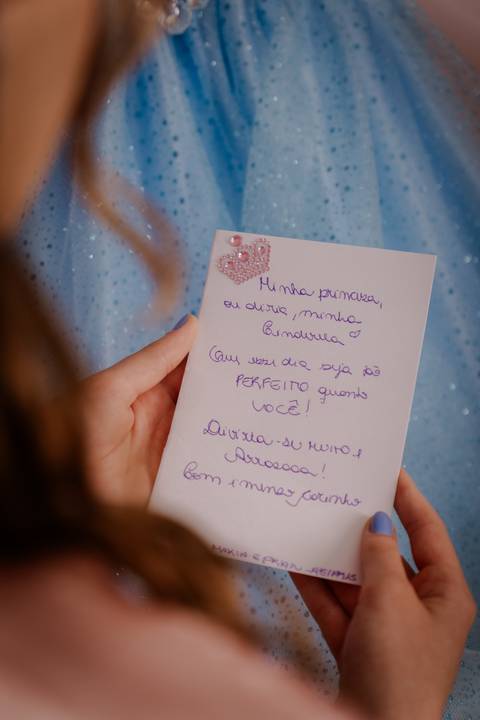 Minha princesa,
ou diria, minha
Cinderela
Que esse dia seja tão
PERFEITO quanto
VOCÊ!
Divirta-se muito e
Arrasaaa!
Com imenso carinho
MARIA E FRAN